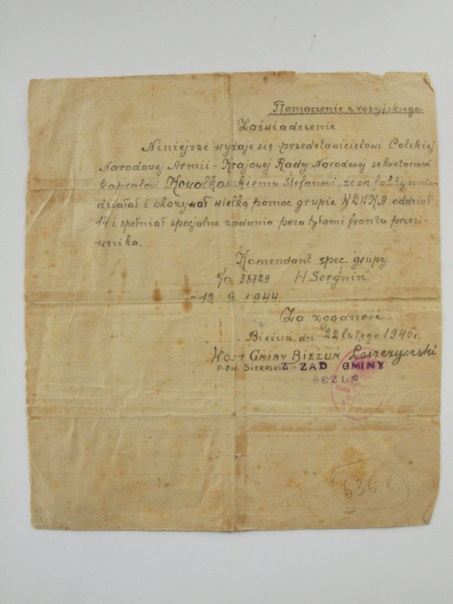 Tłomaczenie z rosyjskiego
Zaświadczenie
Niniejsze wydaje się przedstawicielowi Polskiej
Narodowej Armii - Krajowej Rady Narodowej sekretarzowi
kapralowi Kowalkowskiemu Stefanowi, że on
działał i okazywał wielką pomoc grupie oddział
14 i spełniał specjalne zadania poza tyłami frontu prze-
iwnika.
Komendant spec. grupy
38729 H. Sergnin
12 9 1944
Za zgodność
Bieżuń dn. 22 lutego 1945r.
Wojt Gminy Bieżuń
pow. Sierpski
ZAD GMINY
636